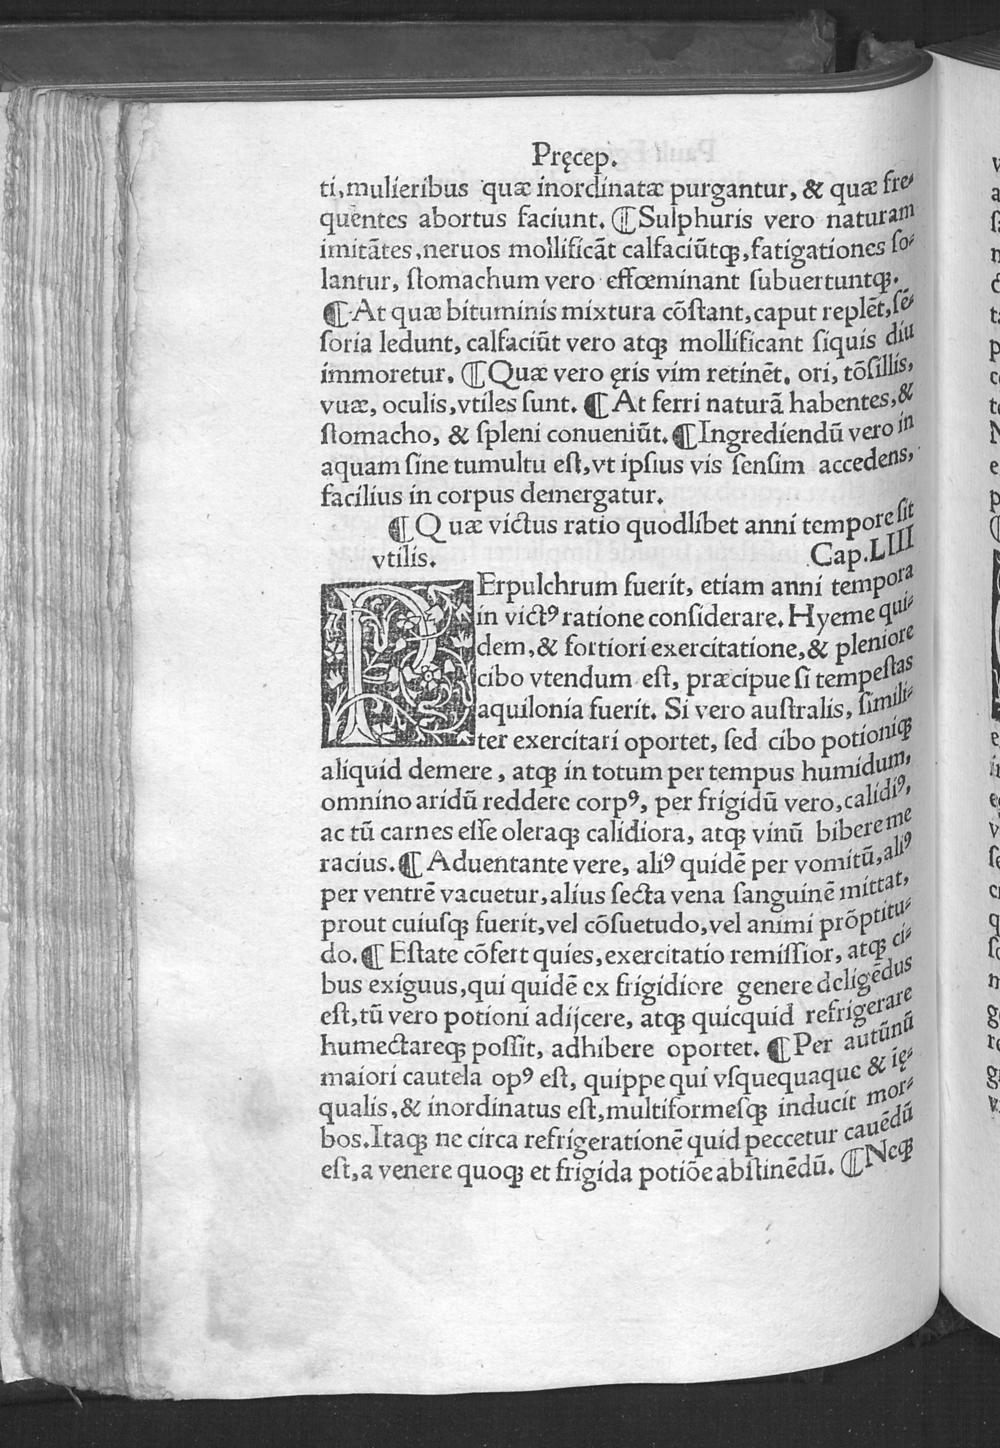 Pręcep.
ti,mulieribus quæ inordinatæ purgantur, & quæ fre⸗
quentes abortus faciunt. ¶Sulphuris vero naturam
imitãtes,neruos mollificãt calfaciũtqꝫ,fatigationes ſo⸗
lantur, ſtomachum vero effœminant ſubuertuntqꝫ.
¶At quæ bituminis mixtura cõſtant,caput replẽt,ſẽ⸗
ſoria ledunt, calfaciũt vero atqꝫ mollificant ſiquis diu
immoretur. ¶Quæ vero ęris vim retinẽt. ori, tõſillis,
vuæ, oculis,vtiles ſunt. ¶At ferri naturã habentes,&
ſtomacho, & ſpleni conueniũt.¶Ingrediendũ vero in
aquam ſine tumultu eſt,vt ipſius vis ſenſim accedens,
facilius in corpus demergatur.
¶Quæ victus ratio quodlibet anni tempore ſit
vtilis. Cap.LIII
PErpulchrum fuerit, etiam anni tempora
in victꝰ ratione conſiderare. Hyeme qui⸗
dem,& fortiori exercitatione,& pleniore
cibo vtendum eſt, præcipue ſi tempeſtas
aquilonia fuerit. Si vero auſtralis, ſimili⸗
ter exercitari oportet, ſed cibo potioniqꝫ
aliquid demere, atqꝫ in totum per tempus humidum,
omnino aridũ reddere corpꝰ, per frigidũ vero,calidiꝰ,
ac tũ carnes eſſe oleraqꝫ calidiora, atqꝫ vinũ bibere me
racius.¶Aduentante vere, aliꝰ quidẽ per vomitũ,aliꝰ
per ventrẽ vacuetur,alius ſecta vena ſanguinẽ mittat,
prout cuiuſqꝫ fuerit,vel cõſuetudo,vel animi prõptitu⸗
do.¶Eſtate cõfert quies,exercitatio remiſſior, atqꝫ ci⸗
bus exiguus,qui quidẽ ex frigidiore genere deligẽdus
eſt,tũ vero potioni adijcere, atqꝫ quicquid refrigerare
humectareqꝫ poſſit, adhibere oportet. ¶Per autũnũ
maiori cautela opꝰ eſt, quippe qui vſquequaque & ię⸗
qualis,& inordinatus eſt,multiformeſqꝫ inducit mor⸗
bos.Itaqꝫ ne circa refrigerationẽ quid peccetur cauẽdũ
eſt,a venere quoqꝫ et frigida potiõe abſtinẽdũ. ¶Neqꝫ